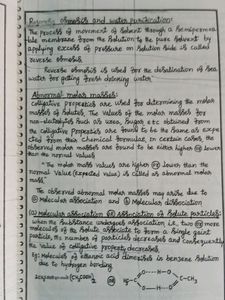 Reverse osmosis and water purification:
The process of movement of solvent through a semipermea
ble membrane from the solution to the pure solvent by
applying excess of pressure on solution side is called
reverse osmosis.
Reverse osmosis is used for the desalination of sea
water for getting fresh drinking water.
Abnormal molar masses:
Colligative properties are used for determining the molar
masses of solutes. The values of the molar masses for
non-electrolytes such as urea, sugar etc obtained from
the colligative properties are found to be the same as expe
cted from their chemical formulae, in certain cases, the
observed molar masses are found to be either higher (or) lower
than the normal values
"The molar mass values are higher (or) lower than the
normal value (expected value) is called as abnormal molar
mass"
The observed abnormal molar masses may arise due to
(a) Molecular association and (b) Molecular dissociation
(a) Molecular association (or) association of solute particles:
When the substance undergoes association i.e., two (or) more
molecules of the solute associate to form a single giant
particle, the number of particles decreases and consequently
the value of colligative property decreases.
Eg: Molecules of ethanoic acid dimerises in benzene solution
due to hydrogen bonding
2CH3COOH ⇌ (CH3COOH)2 (or) H3C-C O---H-O C-CH3
O-H---O